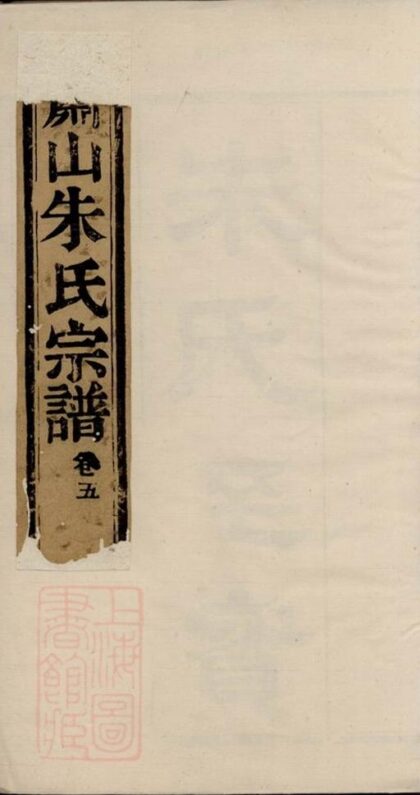 山朱氏宗譜
卷五
上海圖
書館藏